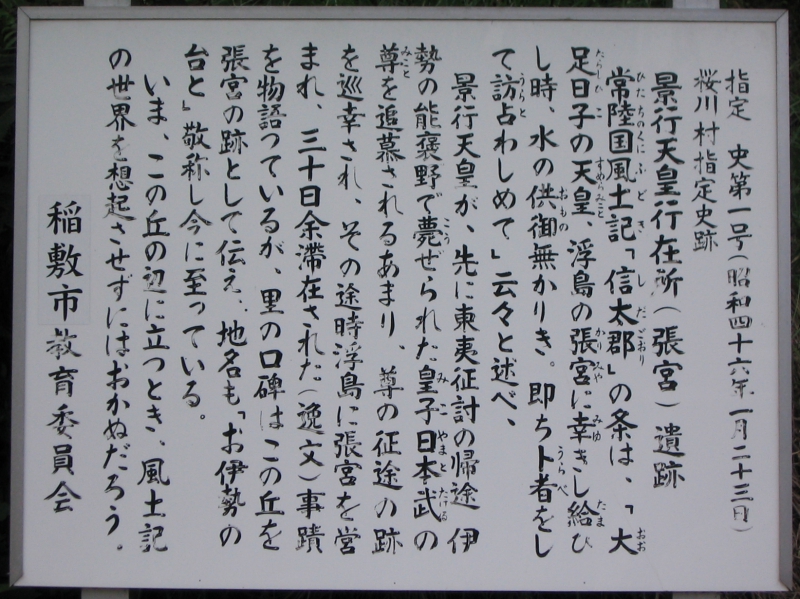 指定 史第一号(昭和四十六年一月二十三日)
桜川村指定史跡
景行天皇行在所(張宮)遺跡
常陸国風土記「信太郡」の条は、「大
足日子の天皇、浮島の張宮に幸きし給ひ
し時、水の供御無かりき。即ち卜者をし
て訪占わしめて」云々と述べ、
景行天皇が、先に東夷征討の帰途 伊
勢の能褒野で薨ぜられた皇子日本武の
尊を追慕されるあまり、尊の征途の跡
を巡幸され、その途時浮島に張宮を営
まれ、三十日余滞在された(逸文)事蹟
を物語っているが、里の口碑はこの丘を
張宮の跡として伝え、地名も「お伊勢の
台と」敬称し今に至っている。
いま、この丘の辺に立つとき、風土記
の世界を想起させずにはおかぬだろう。
稲敷市教育委員会